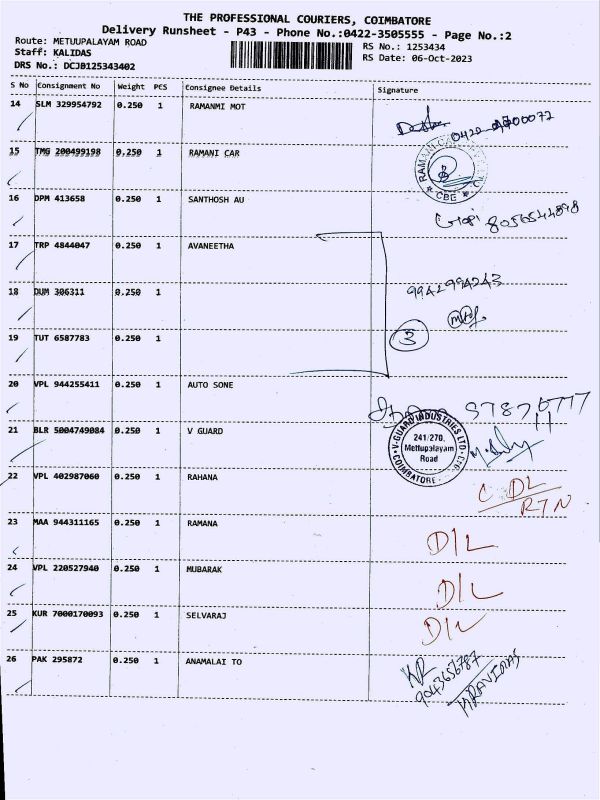 THE PROFESSIONAL COURIERS, COIMBATORE
Delivery Runsheet - P43 - Phone No.:0422-3505555 - Page No.:2
Route: METUUPALAYAM ROAD
Staff: KALIDAS
DRS No.: DCJ0125343402
RS No.: 1253434
RS Date: 06-Oct-2023
S No Consignment No Weight PCS Consignee Details Signature
14 SLM 329954792 0.250 1 RAMANMI MOT
15 TMG 200499198 0.250 1 RAMANI CAR
CBE
16 DPM 413658 0.250 1 SANTHOSH AU
Gopi 8056544898
17 TRP 4844047 0.250 1 AVANEETHA
18 DUM 306311 0.250 1
9942994243
19 TUT 6587783 0.250 1
3
20 VPL 944255411 0.250 1 AUTO SONE
21 BLR 5004749084 0.250 1 V GUARD
V-GUARD INDUSTRIES LTD
241/270,
Mettupalayam
Road
COIMBATORE
22 VPL 402987060 0.250 1 RAHANA
C DL
RTN
23 MAA 944311165 0.250 1 RAMANA
D/L
24 VPL 220527940 0.250 1 MUBARAK
D/L
25 KUR 7000170093 0.250 1 SELVARAJ
D/L
26 PAK 295872 0.250 1 ANAMALAI TO
9043656787